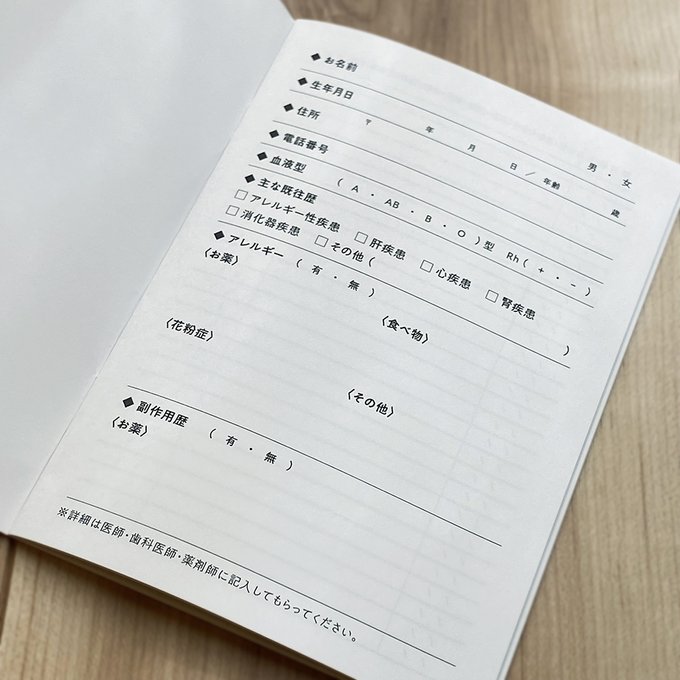 ◆お名前 男・女
◆生年月日 年 月 日／年齢 歳
◆住所 〒
◆電話番号
◆血液型 （ A ・ AB ・ B ・ O ）型 Rh（ + ・ − ）
◆主な既往歴
□アレルギー性疾患 □肝疾患 □心疾患 □腎疾患
□消化器疾患 □その他（ ）
◆アレルギー （ 有 ・ 無 ）
〈お薬〉 〈食べ物〉
〈花粉症〉 〈その他〉
◆副作用歴 （ 有 ・ 無 ）
〈お薬〉
※詳細は医師・歯科医師・薬剤師に記入してもらってください。